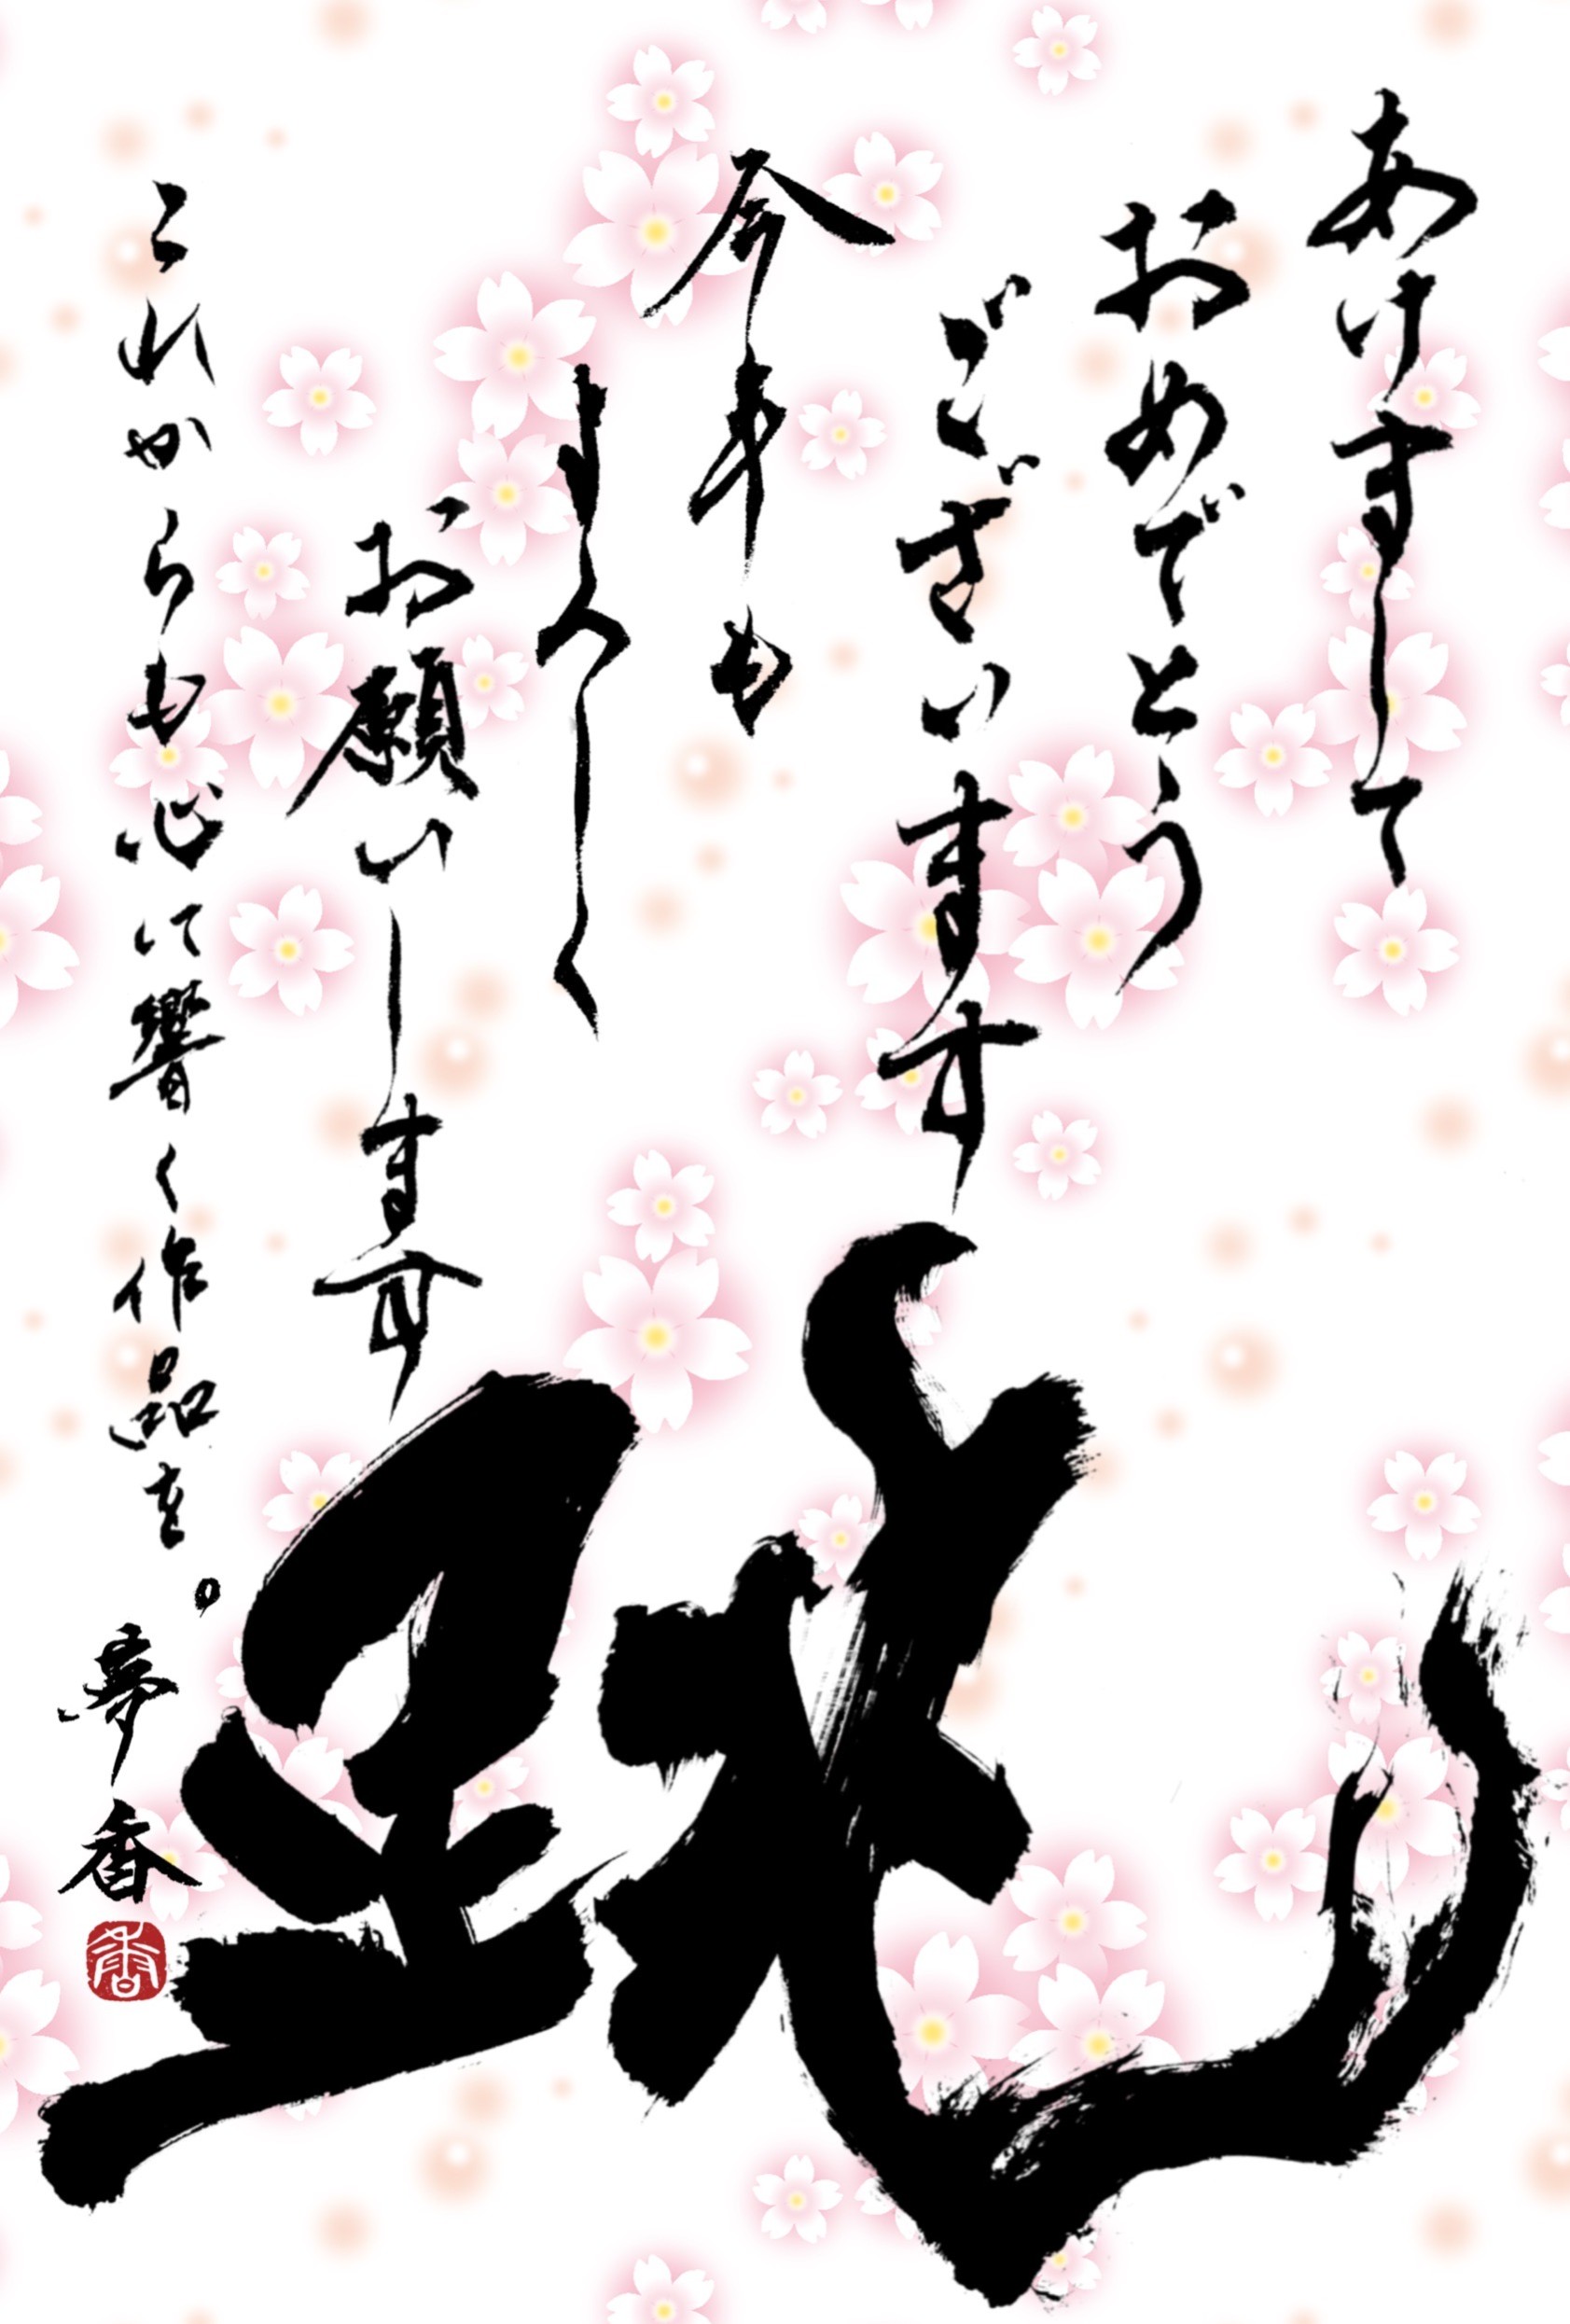 あけまして
おめでとう
ございます
今年も
よろしく
お願いします
これからも心に響く作品を。
夢香
香